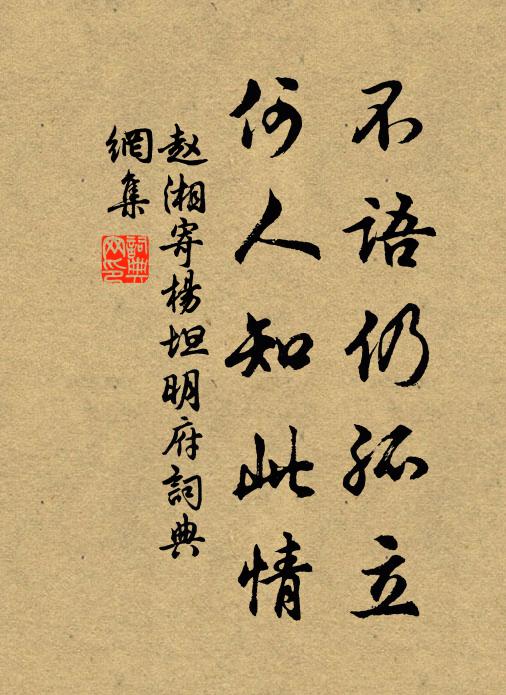 不語仍孤立
何人知此情
赵湘寄楊坦明府詞典
網集
詞典
网印